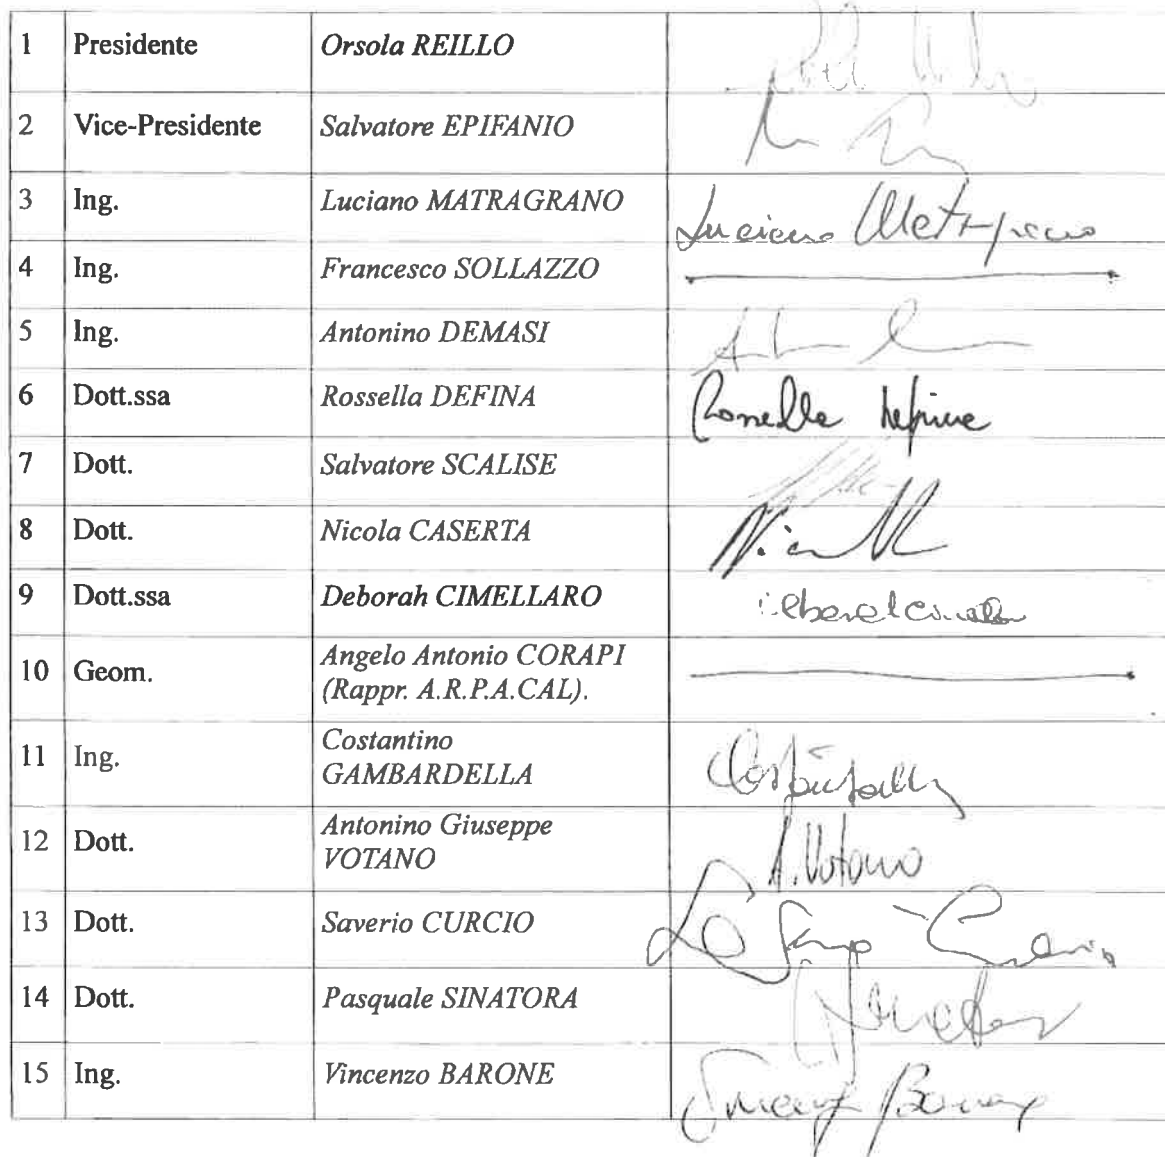 1 Presidente Orsola REILLO
2 Vice-Presidente Salvatore EPIFANIO
3 Ing. Luciano MATRAGRANO Luciano
4 Ing. Francesco SOLLAZZO
5 Ing. Antonino DEMASI
6 Dott.ssa Rossella DEFINA Rossella Defina
7 Dott. Salvatore SCALISE
8 Dott. Nicola CASERTA
9 Dott.ssa Deborah CIMELLARO
10 Geom. Angelo Antonio CORAPI
(Rappr. A.R.P.A.CAL).
11 Ing. Costantino
GAMBARDELLA
12 Dott. Antonino Giuseppe
VOTANO A. Votano
13 Dott. Saverio CURCIO
14 Dott. Pasquale SINATORA
15 Ing. Vincenzo BARONE